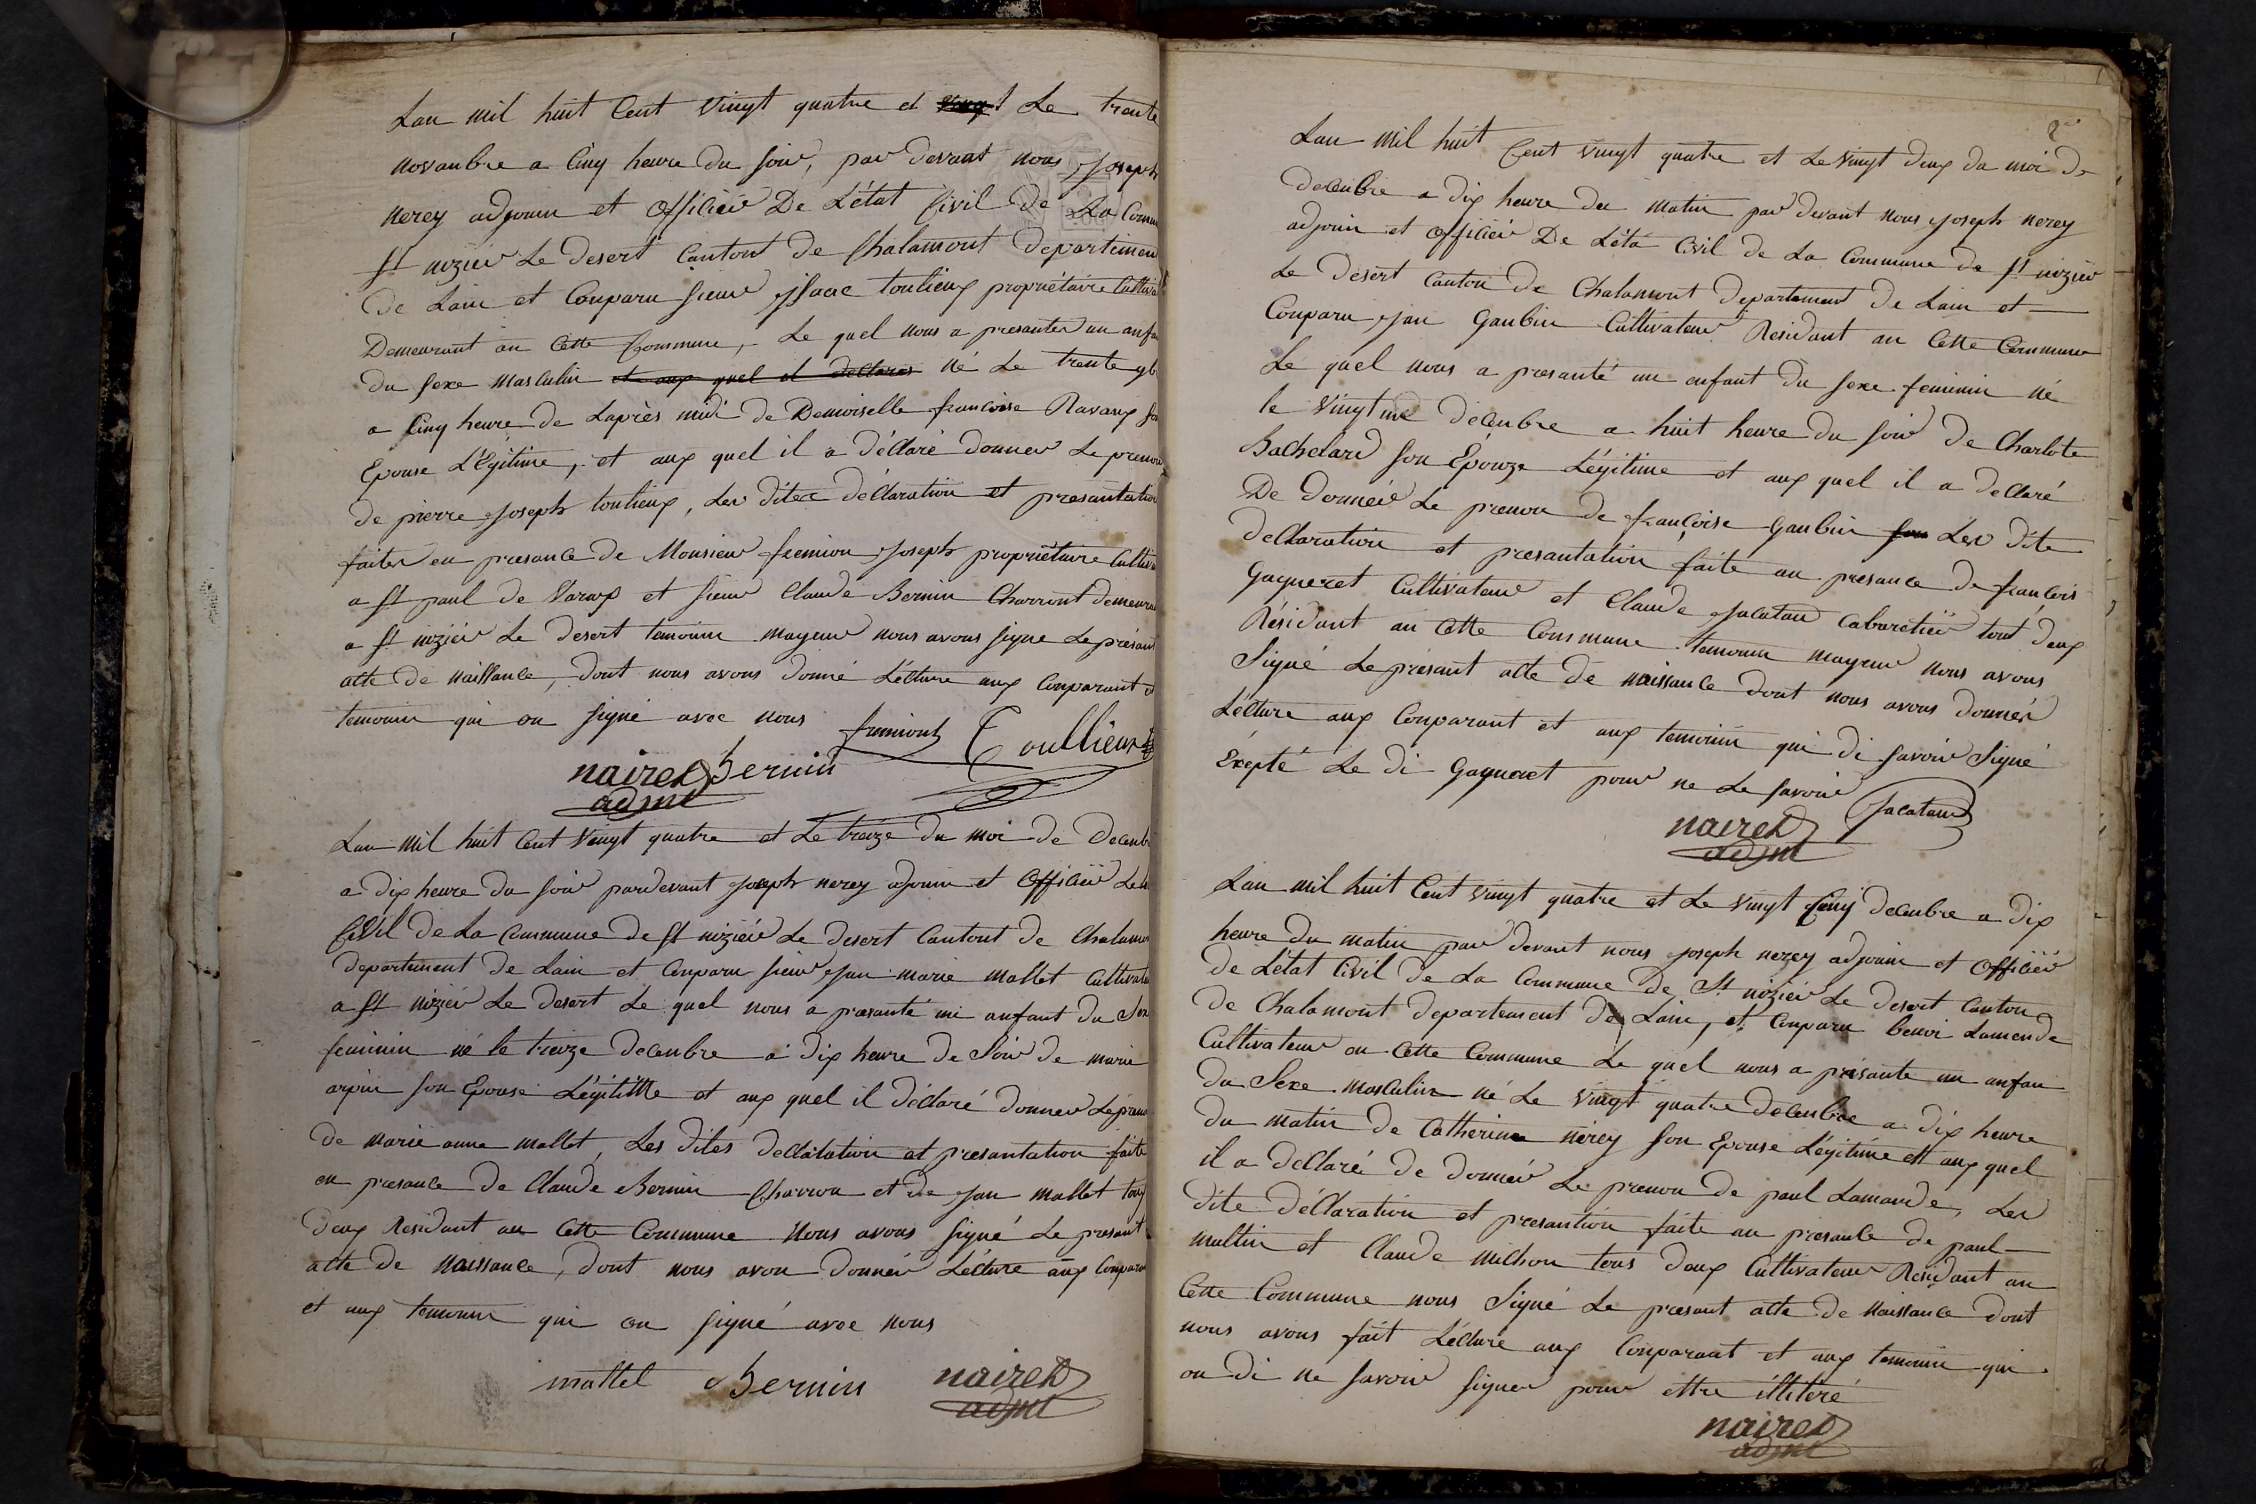 Lan mil huit Cent vingt quatre et vingt Le trente
novanbre a Cinq heure du soir, par devant nous joseph
nerey adjouin et Officiér De L'état Civil de La Comm
St niziér Le desert Cantont de Chalamont departemen
de Lain et Conparu sieur jsaac toulieux propriétaire Cultiva
Demeurant an Cette Commune, Le quel nous a presanter un anfa
du sexe masculin et aux quel il declares né Le trante 9b
a Cinq heure de Laprès midi de Demoiselle francoise Ravaux so
Epouse L'Egitime, et aux quel il a déClaré donner Le prenon
de pierre joseph toulieux, Les dites déClaration et presantation
faites en presance de Monsieur fremion joseph propriétaire Cultiva
a St paul de Varax et sieur Claude Bernin Charront demeura
a St niziér Le desert temouin mageur nous avons signe Le présant
acte de naissance, dont nous avons donné Lécture aux Conparant et
temouin qui on signé avec nous
fremiont Toullieux
nairey Bernin
adjnt
Lan mil huit Cent vingt quatre et Le treize du moi de decenb
a dix heure du soir pardevant joseph nerey adjouin et Officiér De
Civil de La Commune de St niziér Le desert Cantont de Chalamo
departement de Lain et Conparu sieur jan marie mallet Cultivate
a St niziér Le desert Le quel nous a presanté un anfant du Sex
feminin né le treize decenbre a dix heure de Soir de marie
arpin son Epouse Légititme et aux quel il déClaré donner Le preno
de marie anne mallet, Les dites declatation et presantation faite
en presance de Claude Bernin Charron et de jan mallet tous
deux Residant an Cette Commune Nous avons signé Le presant
acte de naissance, dont nous avon donnér Lécture aux Conparan
et aux temouin qui on signé avec nous
mattel Bernin nairey
adjnt
Lan mil huit Cent vingt quatre et Le vingt deux du moi de
decenbre a dix heure du matin par devant nous joseph nerey
adjouin et Officiér De L'éta Civil de La Commune de St niziér
Le desert Canton de Chalamont departement de Lain et
Conparu jan Gaubin Cultivateur Residant an Cette Commune
Le quel nous a presanté un enfant du sexe feminin né
le vingt une décenbre a huit heure du soir de Charlote
Bachelard son Epouze Légitime et aux quel il a declaré
De donnér Le prenon de françoise Gaubin Les dite
declaration et presantation faite an presance de francois
Gagneret Cultivateur et Claude jacataud Cabaretiér tout deux
Résidant an Cette Commune temouin mageur nous avons
Signé Le présant acte de naissance dont nous avons donnér
Lécture aux Conparant et aux temouin qui di savoir Signé
Exepté Le di Gagneret pour ne Le savoir
jacataud
nairey
adjnt
Lan mil huit Cent vingt quatre et Le vingt Cinq decenbre a dix
heure du matin par devant nous joseph nerey adjouin et Officiér
de L'état Civil de La Commune de St niziér Le desert Canton
de Chalamont departement de Lain, et Conparu benoi Lamende
Cultivateur en Cette Commune Le quel nous a présante un anfan
du Sexe masculin né Le vingt quatre decenbre a dix heure
du matin de Catherine nérey son Epouse Légitime et aux quel
il a declaré de donnér Le prenon de paul Lamande, Les
dite déClaration et presantion faite an presance de paul
multin et Claude michon tous deux Cultivateur Residant an
Cette Commune nous Signé Le presant acte de naissance dont
nous avons fait Lécture aux Conparant et aux temouin qui
on di ne savoir signer pour éttre illitéré
nairey
adjnt